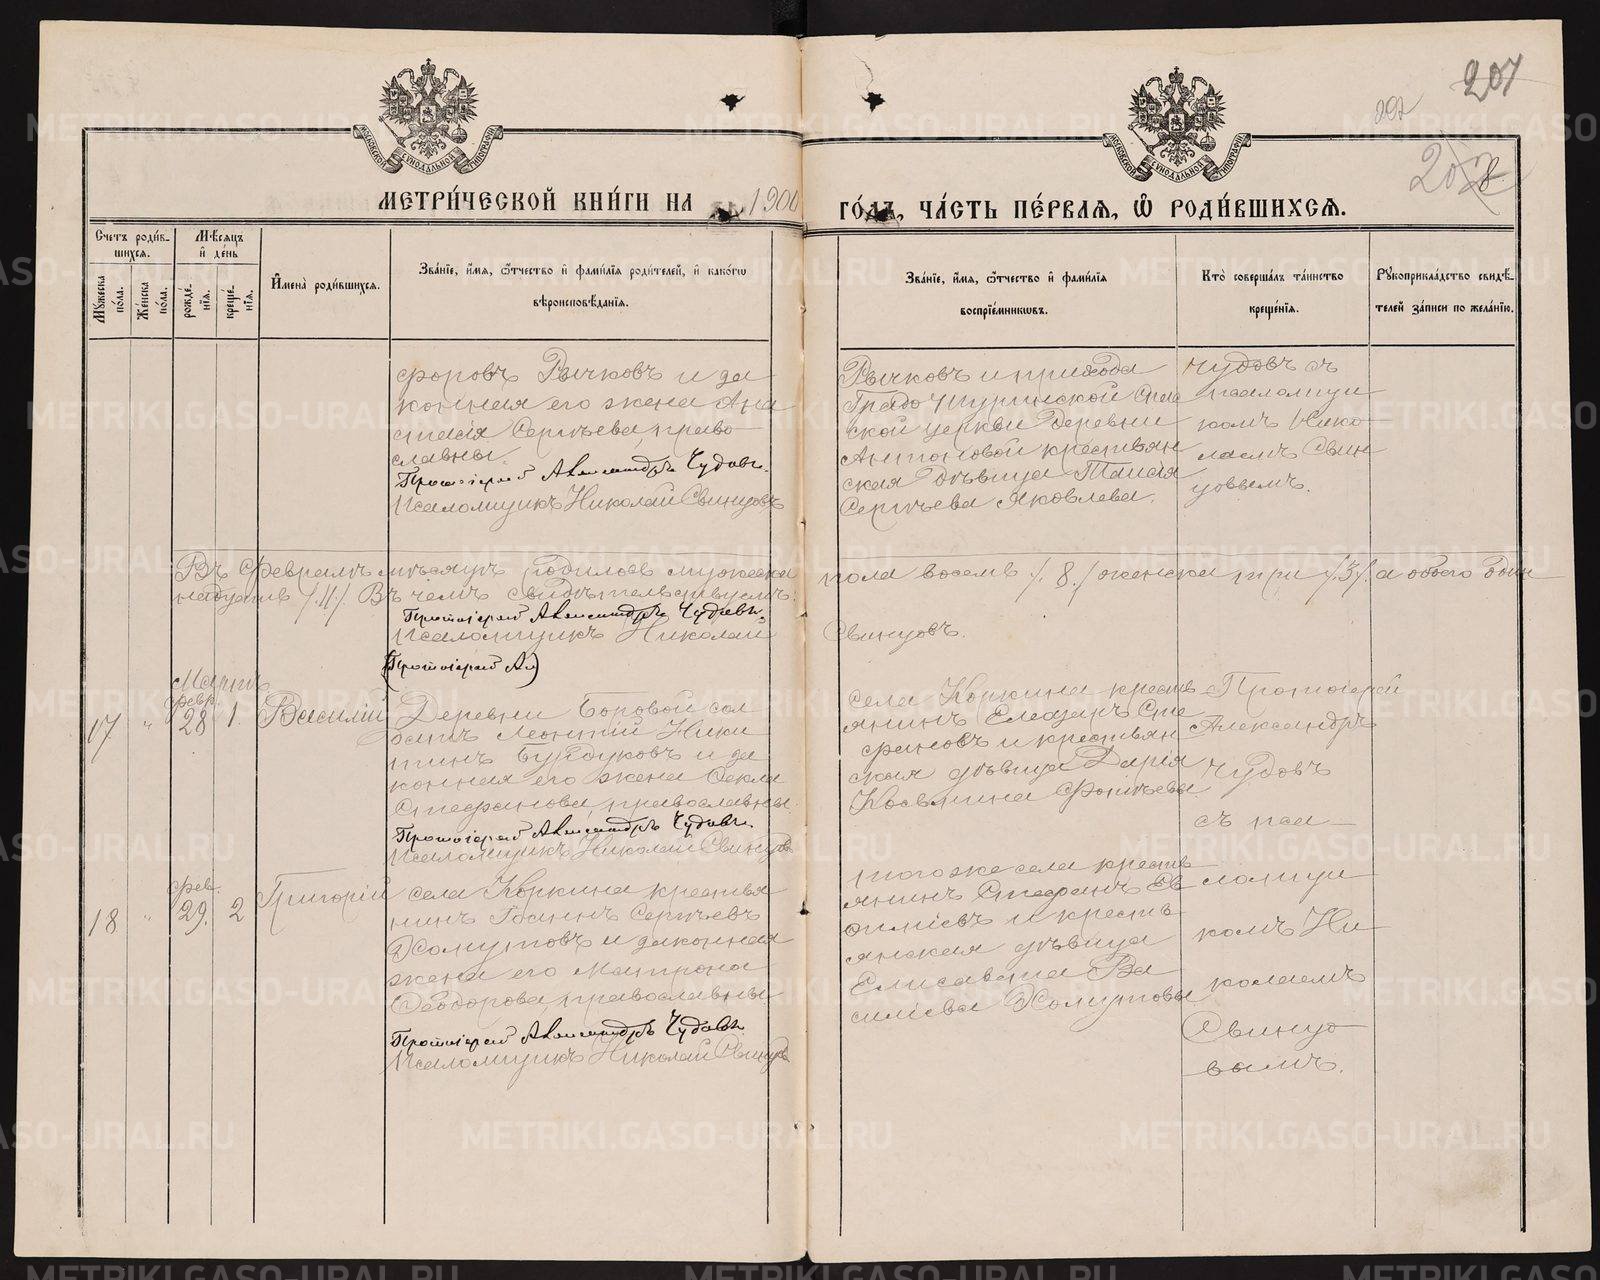 207
202
МЕТРИ́ЧЕСКОЙ КНИ́ГИ НА 1900
ГО́ДЪ, ЧА́СТЬ ПЕ́РВАЯ, Ѡ҆ РОДИ́ВШИХСЯ.
Счетъ роди́вшихся.
Му́жеска по́ла.
Же́нска по́ла.
Мѣ́сяцъ и де́нь
рожде́нія.
креще́нія.
И҆мена̀ роди́вшихся.
Зва́ніе, и҆́мя, ѻ҆́тчество и҆ фами́лія роди́телей, и҆ како́гѡ
вѣроисповѣ́данія.
Зва́ніе, и҆́мя, ѻ҆́тчество и҆ фами́лія
воспріе́мникѡвъ.
Кто̀ соверша́лъ та́инство
креще́нія.
Рꙋкоприкла́дство свидѣ́-
телей за́писи по жела́нію.
форовъ Рычковъ и за
конная его жена Ана
стасія Сергѣева, право-
славны.
Протоіерей Александръ Чудовъ.
Псаломщикъ Николай Свинцовъ
Рычковъ и прихода
Градо Туринской Спас
ской церкви деревни
Антоновой крестьян
ская дѣвица Таисія
Сергѣева Яковлева.
Чудовъ съ
псаломщи
комъ Нико
лаемъ Свин
цовымъ.
Въ Февралѣ мѣсяцѣ родилось мужеска
пола восемь /.8./ женска три /.3./ а обоего один
надцать /.11./ Въ чемъ свидѣтельствуемъ:
Протоіерей Александръ Чудовъ.
Псаломщикъ Николай
Свинцовъ.
(Протоіерей Ал)
Мартъ
17 " февр. 28 1. Василій
Деревни Боровой сол
датъ Леонтій Ники
тинъ Бурдуковъ и за
конная его жена Ѳекла
Стефанова, православны.
Протоіерей Александръ Чудовъ.
Псаломщикъ Николай Свинцовъ
села Коркина кресть
янинъ Елеазаръ Сте
фановъ и крестьян
ская дѣвица Дарія
Косьмина
Протоіерей
Александръ
Чудовъ
съ пса-
ломщи
комъ Ни
колаемъ
Свинцо
вымъ.
18 " фев. 29. 2 Григорій
села Коркина крестья
нинъ Іоаннъ Сергѣевъ
Хомутовъ и законная
жена его Матрона
Ѳеодорова, православны.
Протоіерей Александръ Чудовъ.
Псаломщикъ Николай Свинцовъ
того же села кресть
янинъ Стефанъ Ев
и кресть
янская дѣвица
Елисавета Ва
силіева Хомутовы